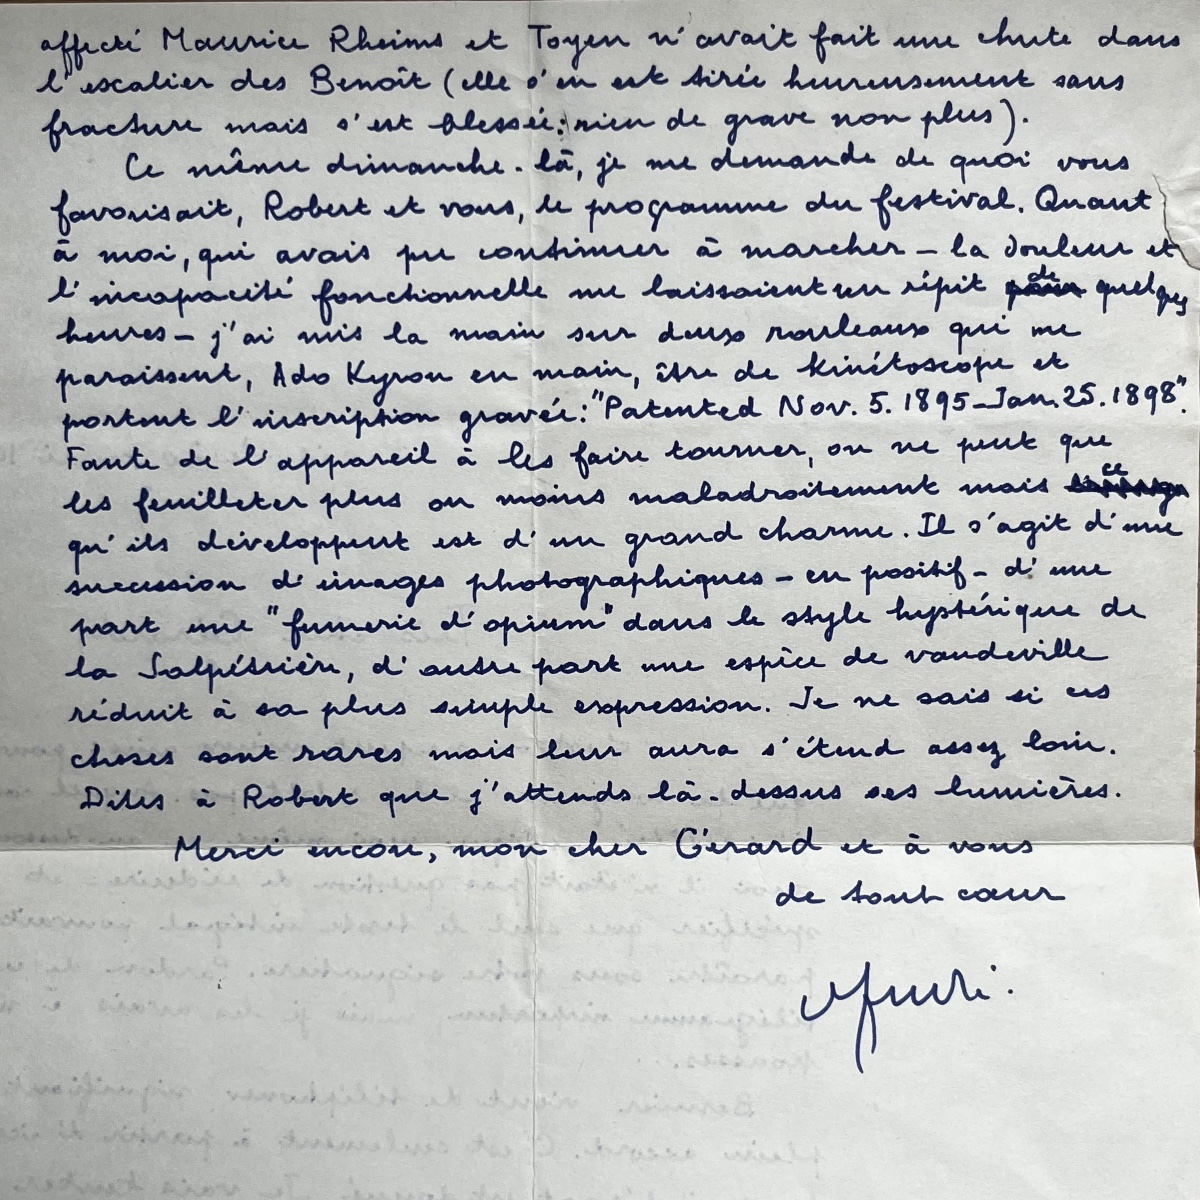 affecté Maurice Rheims et Toyen n'avait fait une chute dans
l'escalier des Benoît (elle s'en est tirée heureusement sans
fracture mais s'est blessée : rien de grave non plus).
Ce même dimanche-là, je me demande de quoi vous
favorisait, Robert et vous, le programme du festival. Quant
à moi, qui avais pu continuer à marcher — la douleur et
l'incapacité fonctionnelle me laissaient un répit de quelques
heures — j'ai mis la main sur deux rouleaux qui me
paraissent, Ado Kyrou en main, être de kinétoscope et
portent l'inscription gravée : "Patented Nov. 5. 1895 – Jan. 25. 1898".
Faute de l'appareil à les faire tourner, on ne peut que
les feuilleter plus ou moins maladroitement mais ce
qu'ils développent est d'un grand charme. Il s'agit d'une
succession d'images photographiques — en positif — d'une
part une "fumerie d'opium" dans le style hystérique de
la Salpêtrière, d'autre part une espèce de vaudeville
réduit à sa plus simple expression. Je ne sais si ces
choses sont rares mais leur aura s'étend assez loin.
Dites à Robert que j'attends là-dessus ses lumières.
Merci encore, mon cher Gérard et à vous
de tout cœur
André.